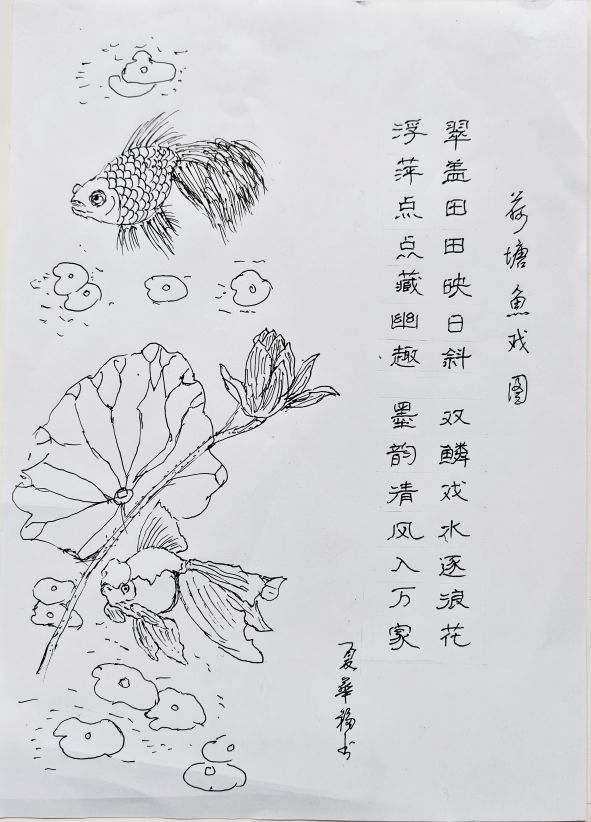 荷塘鱼戏图
翠盖田田映日斜 双鳞戏水逐浪花
浮萍点点藏幽趣 墨韵清风入万家
夏華福书